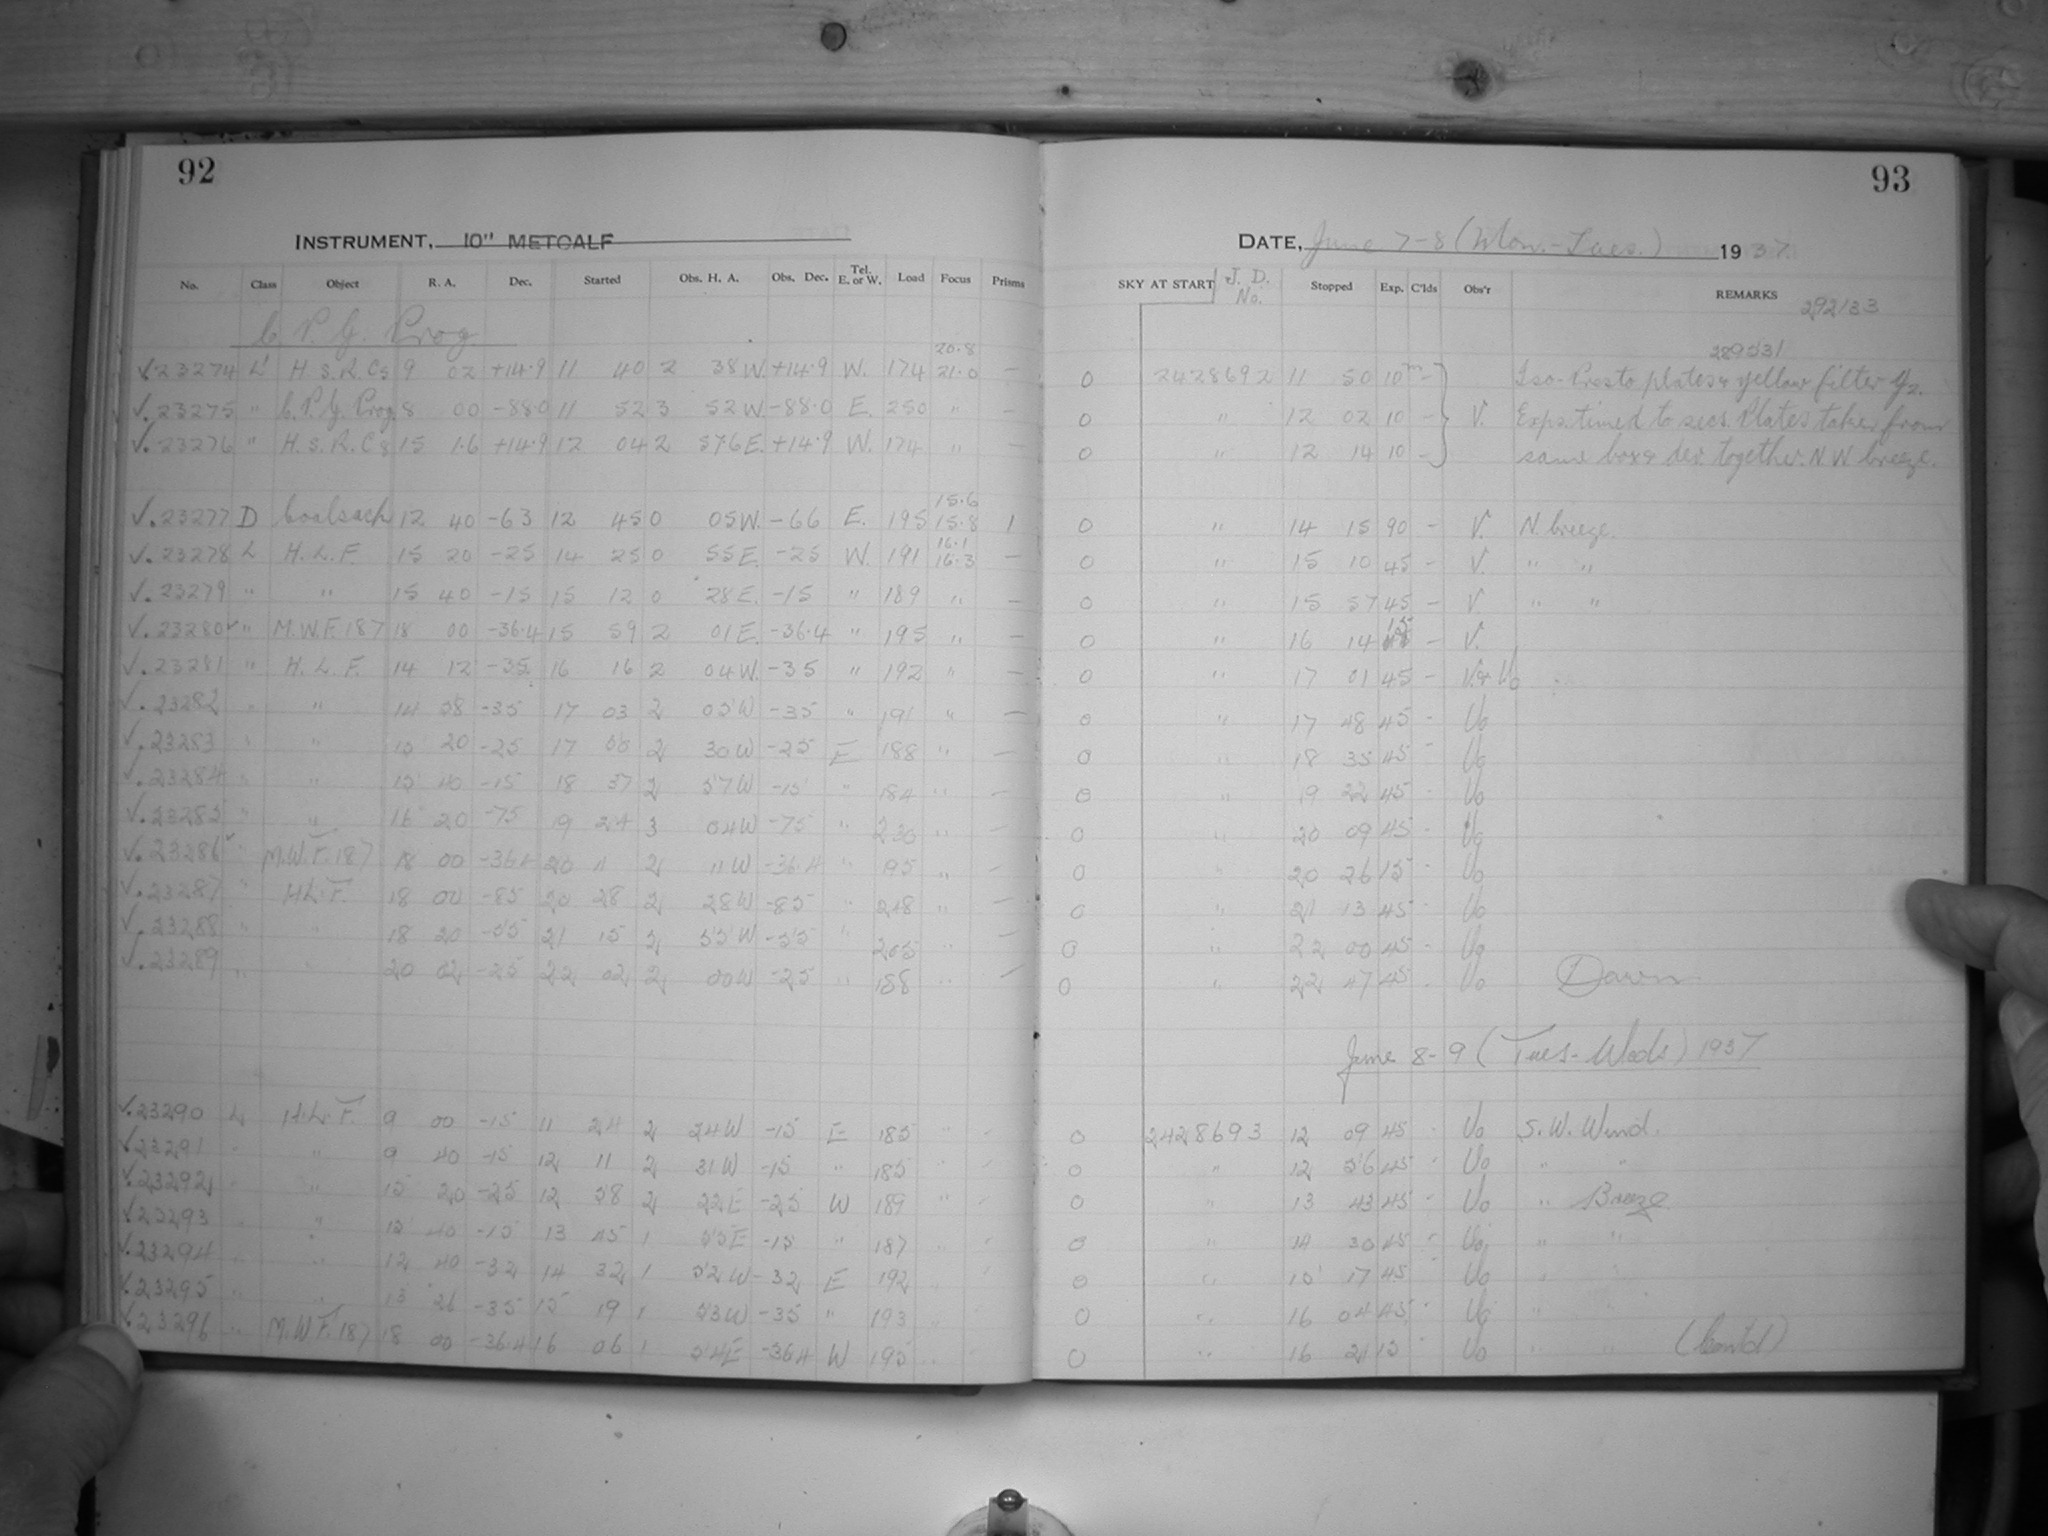 92
INSTRUMENT, 10" METCALF
No. Class Object R. A. Dec. Started Obs. H. A. Obs. Dec. Tel. E. or W. Load Focus Prisms
C. P. G. Prog
20.8
✓23274 L H S. R. Cs 9 02 +14.9 11 40 2 38 W. +14.9 W. 174 21.0 —
✓.23275 " C. P. G. Prog. 8 00 -88.0 11 52 3 52 W. -88.0 E. 250 " —
✓.23276 " H. S. R. Cs 15 1.6 +14.9 12 04 2 57.6 E. +14.9 W. 174 " —
15.6
✓.23277 D Coalsack 12 40 -63 12 45 0 05 W. -66 E. 195 15.8 1
16.1
✓.23278 L H. L. F. 15 20 -25 14 25 0 55 E. -25 W. 191 16.3 —
✓.23279 " " 15 40 -15 15 12 0 28 E. -15 " 189 " —
✓.23280✓ " M.W.F. 187 18 00 -36.4 15 59 2 01 E. -36.4 " 195 " —
✓.23281 " H. L. F. 14 12 -35 16 16 2 04 W. -35 " 192 " —
✓.23282 " " 14 58 -35 17 03 2 05 W -35 " 191 " —
✓.23283 " " 15 20 -25 17 50 2 30 W -25 E 188 " —
✓.23284 " " 15 40 -15 18 37 2 57 W -15 " 184 " —
✓.23285 " " 16 20 -75 19 24 3 04 W -75 " 230 " —
✓.23286✓ " M.W.F. 187 18 00 -36.4 20 11 2 11 W -36.4 " 195 " —
✓.23287 " H.L.F. 18 00 -85 20 28 2 28 W -85 " 248 " —
✓.23288 " " 18 20 -55 21 15 2 55 W -55 " 205 " —
✓.23289 " " 20 02 -25 22 02 2 00 W -25 " 188 " —
✓.23290 L H.L.F. 9 00 -15 11 24 2 24 W -15 E 185 " -
✓23291 " " 9 40 -15 12 11 2 31 W -15 " 185 " -
✓.23292 " " 15 20 -25 12 58 2 22 E -25 W 189 " -
✓23293 " " 15 40 -15 13 45 1 55 E -15 " 187 " -
✓.23294 " " 12 40 -32 14 32 1 52 W -32 E 192 " -
✓.23295 " " 13 26 -35 15 19 1 53 W -35 " 193 "
✓23296 " M.W.F. 187 18 00 -36.4 16 06 1 54 E -36.4 W 195 "
93
DATE, June 7-8 (Mon.-Tues.) 1937
SKY AT START J. D. No. Stopped Exp. C'lds Obs'r REMARKS
292133
289531
0 2428692 11 50 10m - Iso-Presto plates & yellow filter Y2.
0 " 12 02 10 - V. Exps. timed to secs. Plates taken from
0 " 12 14 10 - same box & dev. together. N. W breeze.
0 " 14 15 90 - V. N. breeze.
0 " 15 10 45 - V. " "
0 " 15 57 45 - V " "
0 " 16 14 15 - V.
0 " 17 01 45 - V. & Uo
0 " 17 48 45 - Uo
0 " 18 35 45 - Uo
0 " 19 22 45 - Uo
0 " 20 09 45 - Uo
0 " 20 26 15 - Uo
0 " 21 13 45 - Uo
0 " 22 00 45 - Uo
0 " 22 47 45 - Uo Dawn
June 8-9 (Tues-Weds) 1937
0 2428693 12 09 45 - Uo S. W. Wind.
0 " 12 56 45 - Uo " "
0 " 13 43 45 - Uo " Breeze
0 " 14 30 45 - Uo " "
0 " 15 17 45 - Uo " "
0 " 16 04 45 - Uo " "
0 " 16 21 15 - Uo " " (Contd)